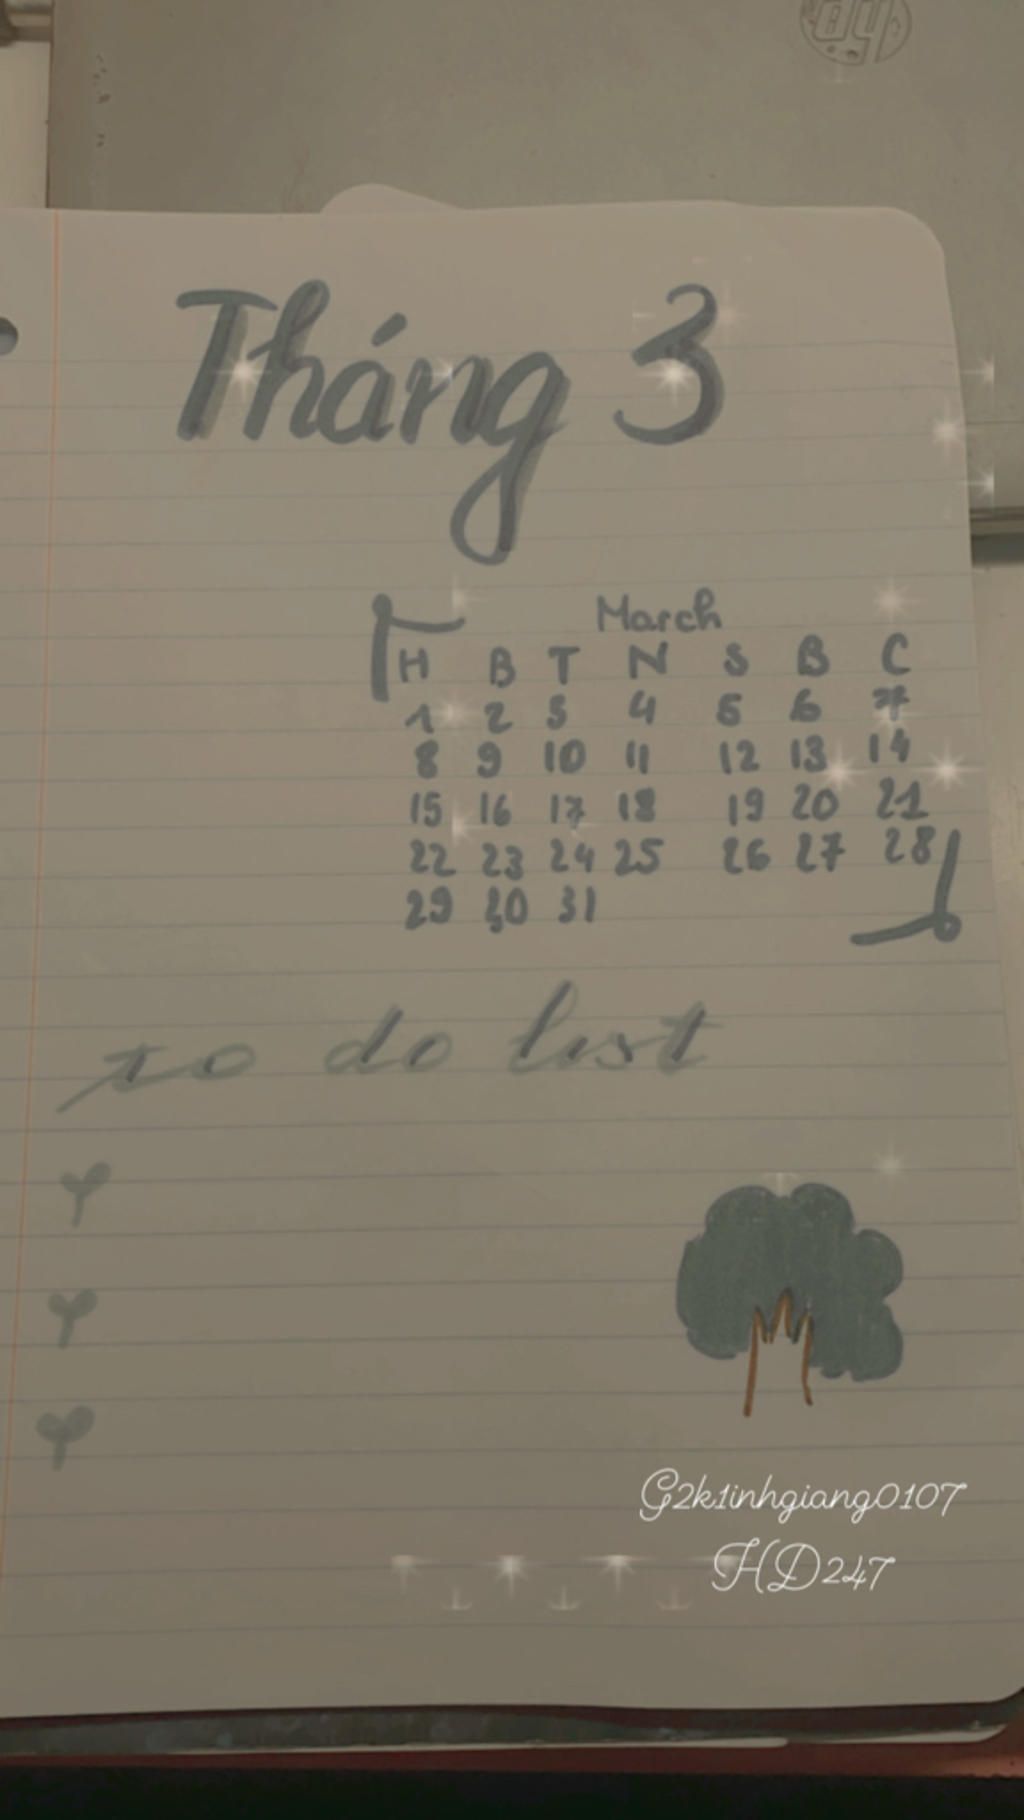 hp
Tháng 3
March
H B T N S B C
1 2 3 4 5 6 7
8 9 10 11 12 13 14
15 16 17 18 19 20 21
22 23 24 25 26 27 28
29 30 31
to do list
G2k1inhgiang0107
HD247